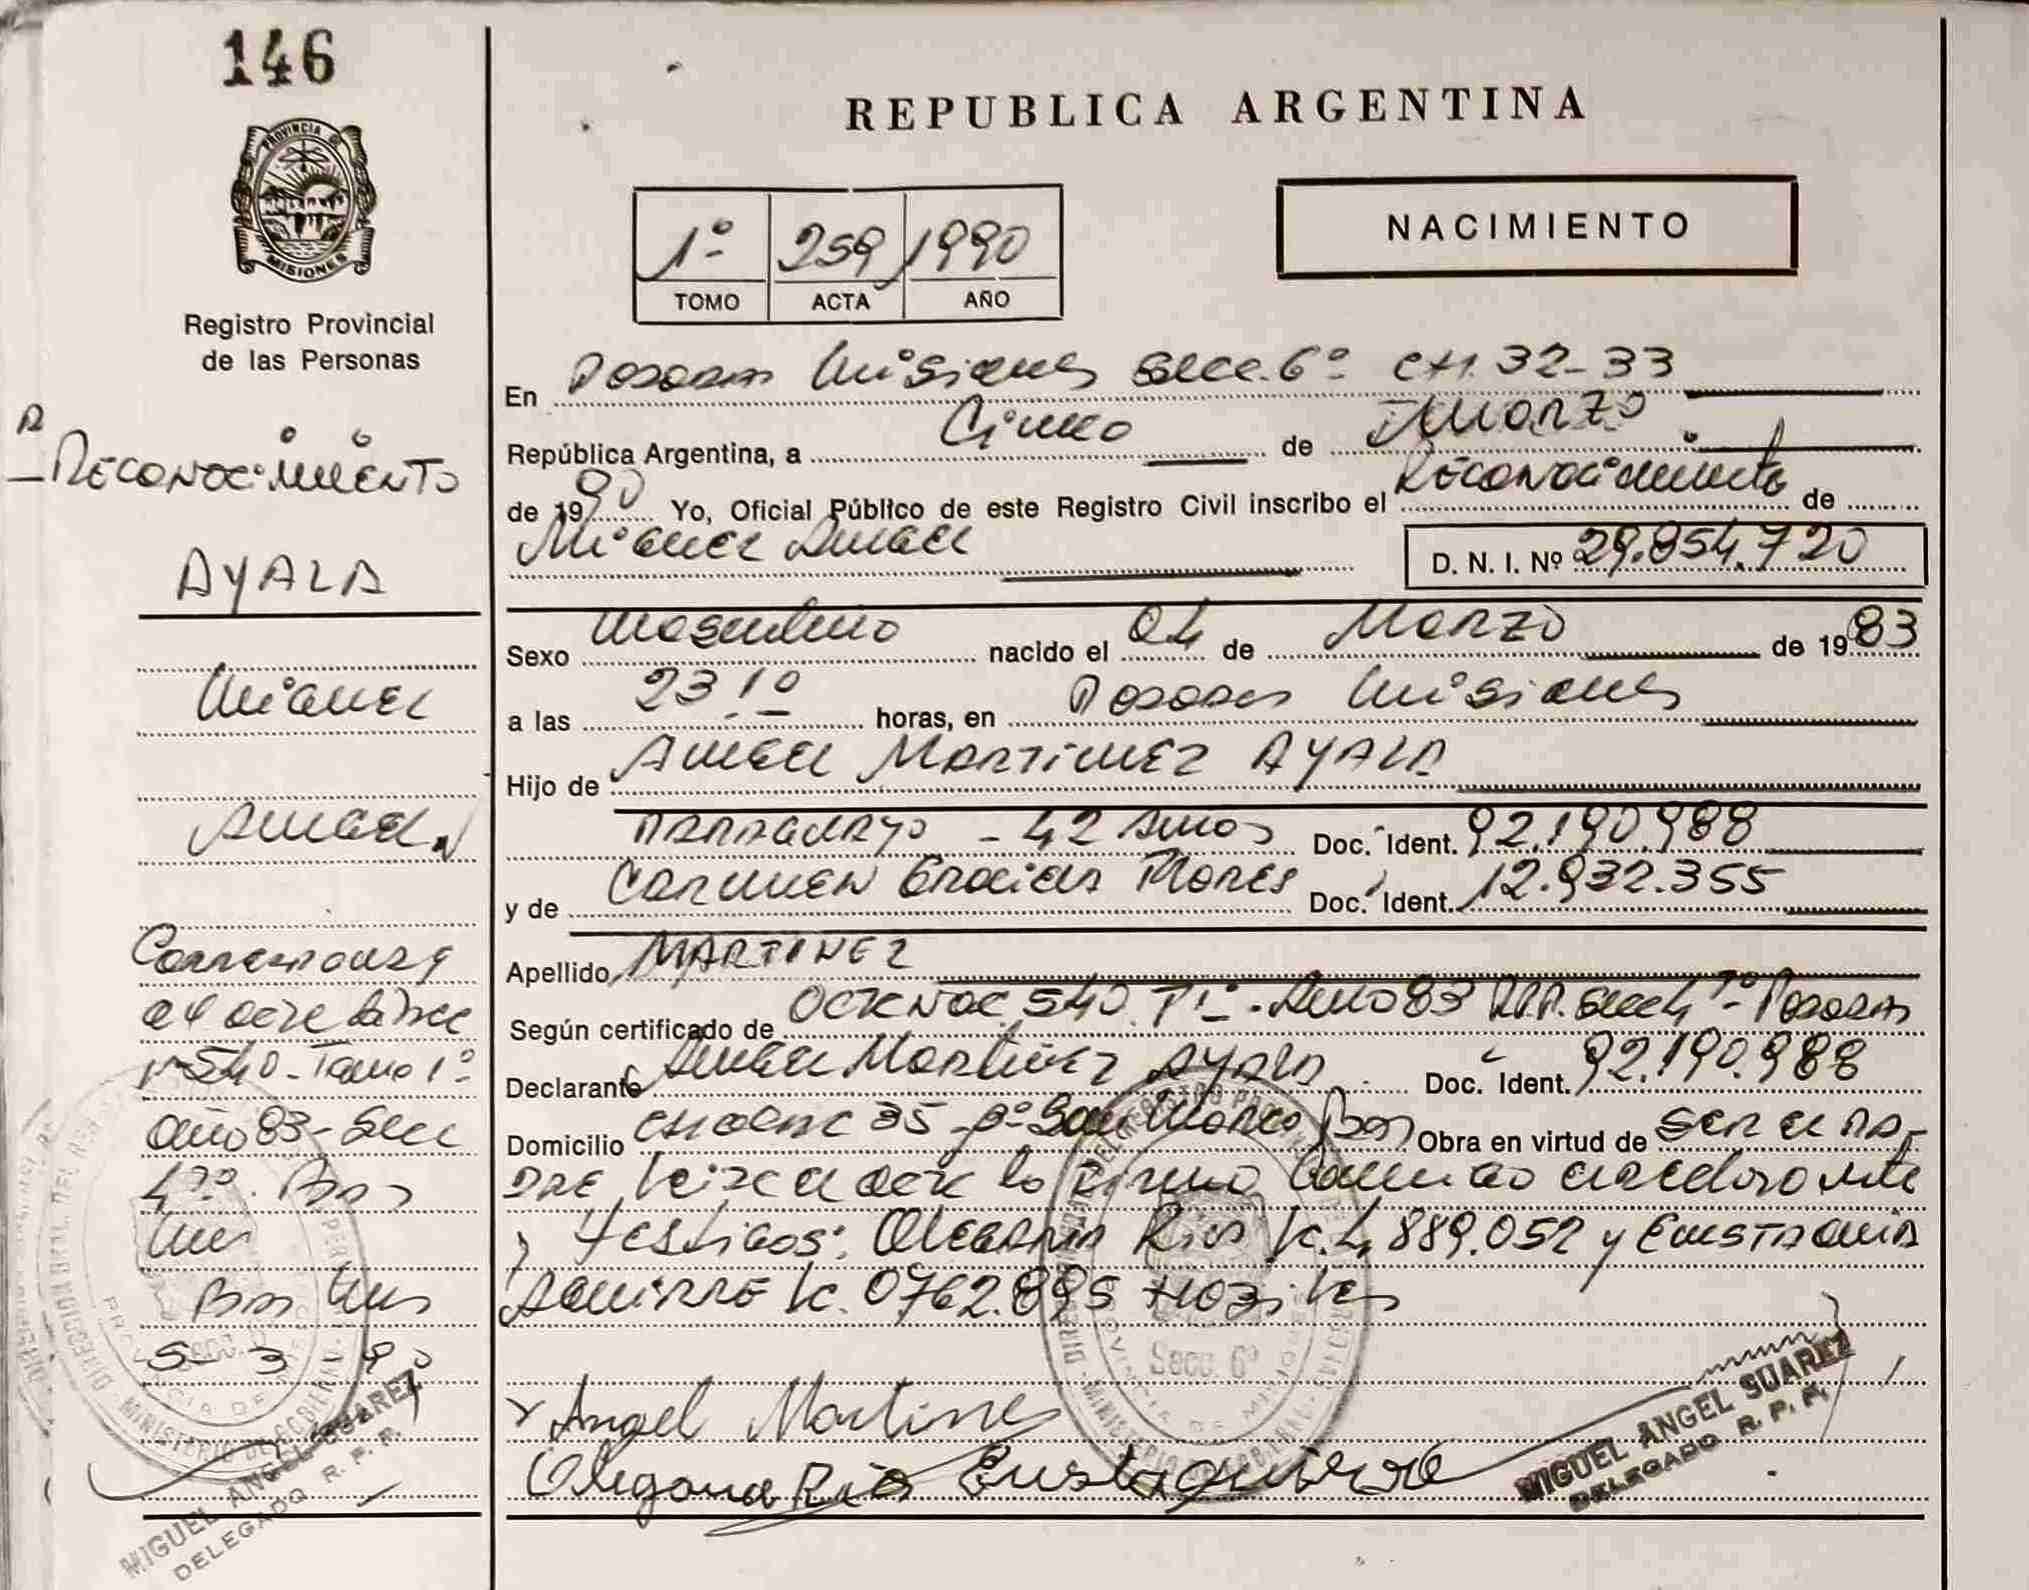 146
PROVINCIA DE
MISIONES
Registro Provincial
de las Personas
RECONOCIMIENTO
AYALA
Miguel
Angel
Corresponde
al acta
Nº 540 - Tomo 1º
año 83 - Secc
4ta. Pdas
Mnes
Pdas Mnes
5-3-90
MIGUEL ANGEL SUAREZ
DELEGADO R. P. P.
REPUBLICA ARGENTINA
NACIMIENTO
1º 259 1990
TOMO ACTA AÑO
En Posadas Misiones Secc. 6º CH. 32-33
República Argentina, a Cinco de Marzo
de 1990 Yo, Oficial Público de este Registro Civil inscribo el Reconocimiento de
Miguel Angel D. N. I. Nº 29.854.720
Sexo Masculino nacido el 04 de Marzo de 1983
a las 23.10 horas, en Posadas Misiones
Hijo de Angel Martinez AYALA
Paraguayo - 42 años Doc. Ident. 92.190.988
y de Carmen Graciela Flores Doc. Ident. 12.932.355
Apellido MARTINEZ
Según certificado de Acta Nac. 540. Tº 1º - Año 83 R.P.P. Secc 4ta. Posadas
Declarante Angel Martinez AYALA Doc. Ident. 92.190.988
Domicilio Chacra 35 Bº San Marco Pdas Obra en virtud de ser el pa-
dre leida el acta la firma
y testigos: Olegaria Rios 4.889.052 y Eustaquia
Aguirre 0762.895
Secc. 6º
Angel Martines
Olegaria Rios Eustaquia
MIGUEL ANGEL SUAREZ
DELEGADO R. P. P.